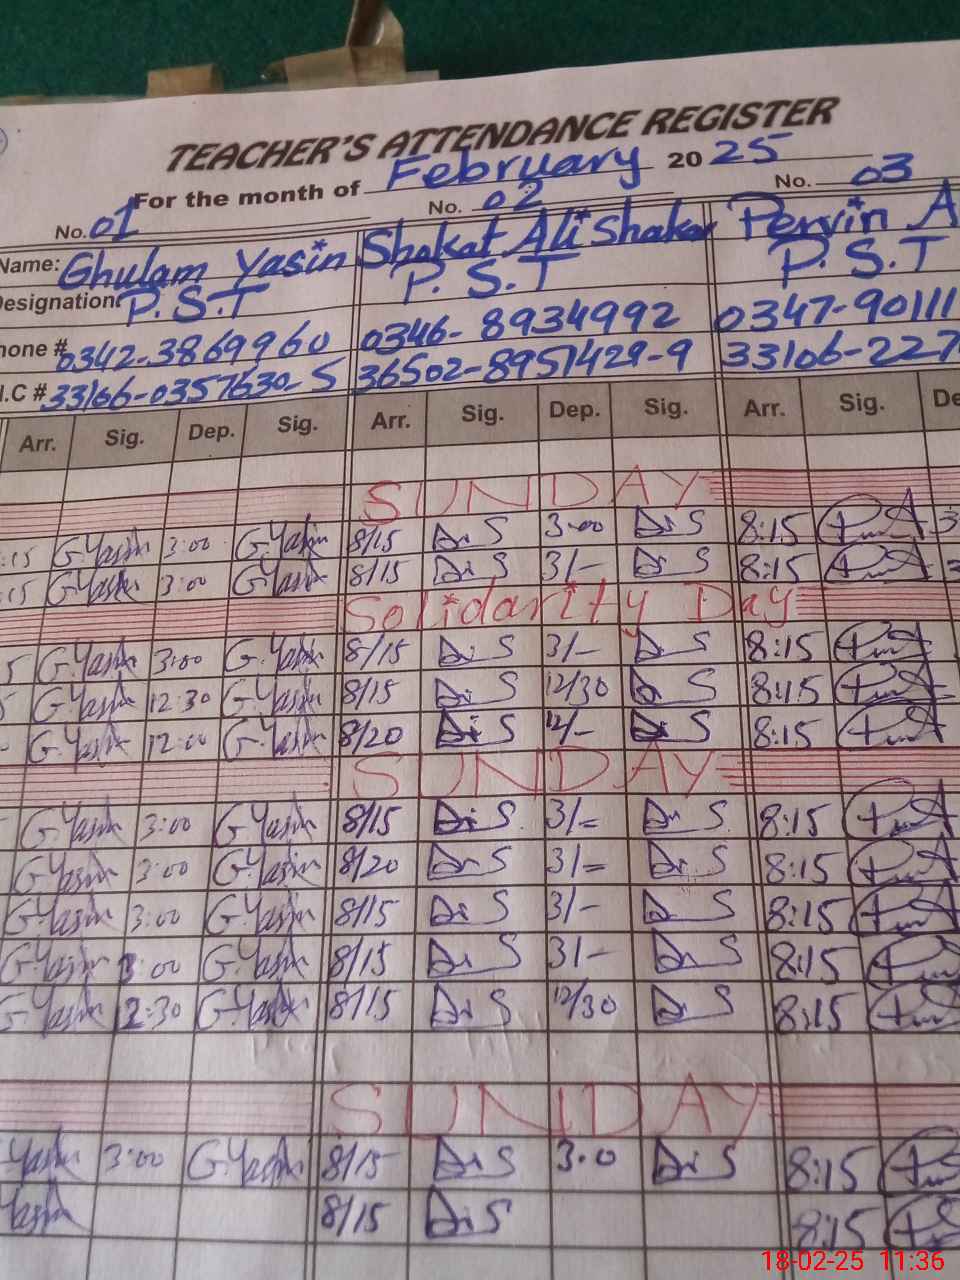 TEACHER'S ATTENDANCE REGISTER
For the month of February 2025
No. 01 No. 02 No. 03
Name: Ghulam Yasin Shakat Ali Shakar Pervin A
Designation: P.S.T P.S.T P.S.T
hone # 0342-3869960 0346-8934992 0347-90111
I.C # 33166-0357630-5 36502-8951429-9 33106-227
Arr. Sig. Dep. Sig. Arr. Sig. Dep. Sig. Arr. Sig. De
SUNDAY
:15 G.Yasin 3:00 G.Yasin 8/15 3-00 8:15 3
:15 G.Yasin 3:00 G.Yasin 8/15 3/- 8:15 3
Solidarity Day
5 G.Yasin 3:00 G.Yasin 8/15 3/- 8:15
5 G.Yasin 12:30 G.Yasin 8/15 12/30 8:15
G.Yasin 12:00 G.Yasin 8/20 12/- 8:15
SUNDAY
G.Yasin 3:00 G.Yasin 8/15 3/= 8:15
G.Yasin 3:00 G.Yasin 8/20 3/= 8:15
G.Yasin 3:00 G.Yasin 8/15 3/- 8:15
G.Yasin 3:00 G.Yasin 8/15 3/- 8:15
G.Yasin 12:30 G.Yasin 8/15 12/30 8:15
SUNDAY
Yasin 3:00 G.Yasin 8/15 3.0 8:15
Yasin 8/15 8:15
18-02-25 11:36